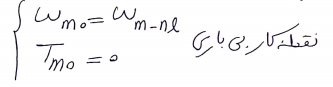 ω_mo = ω_m-nl
T_mo = 0
نقطه کار بی باری